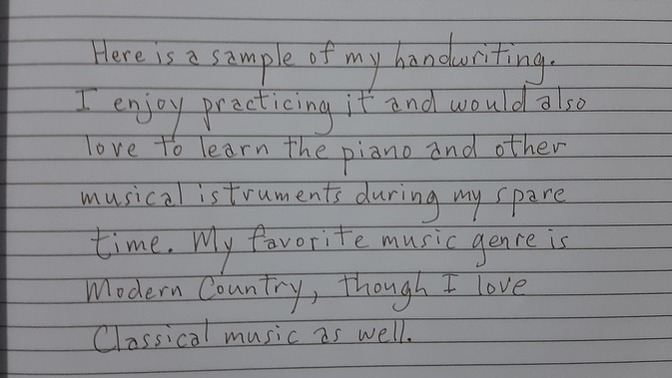 Here is a sample of my handwriting.
I enjoy practicing it and would also
love to learn the piano and other
musical istruments during my spare
time. My favorite music genre is
Modern Country, though I love
Classical music as well.